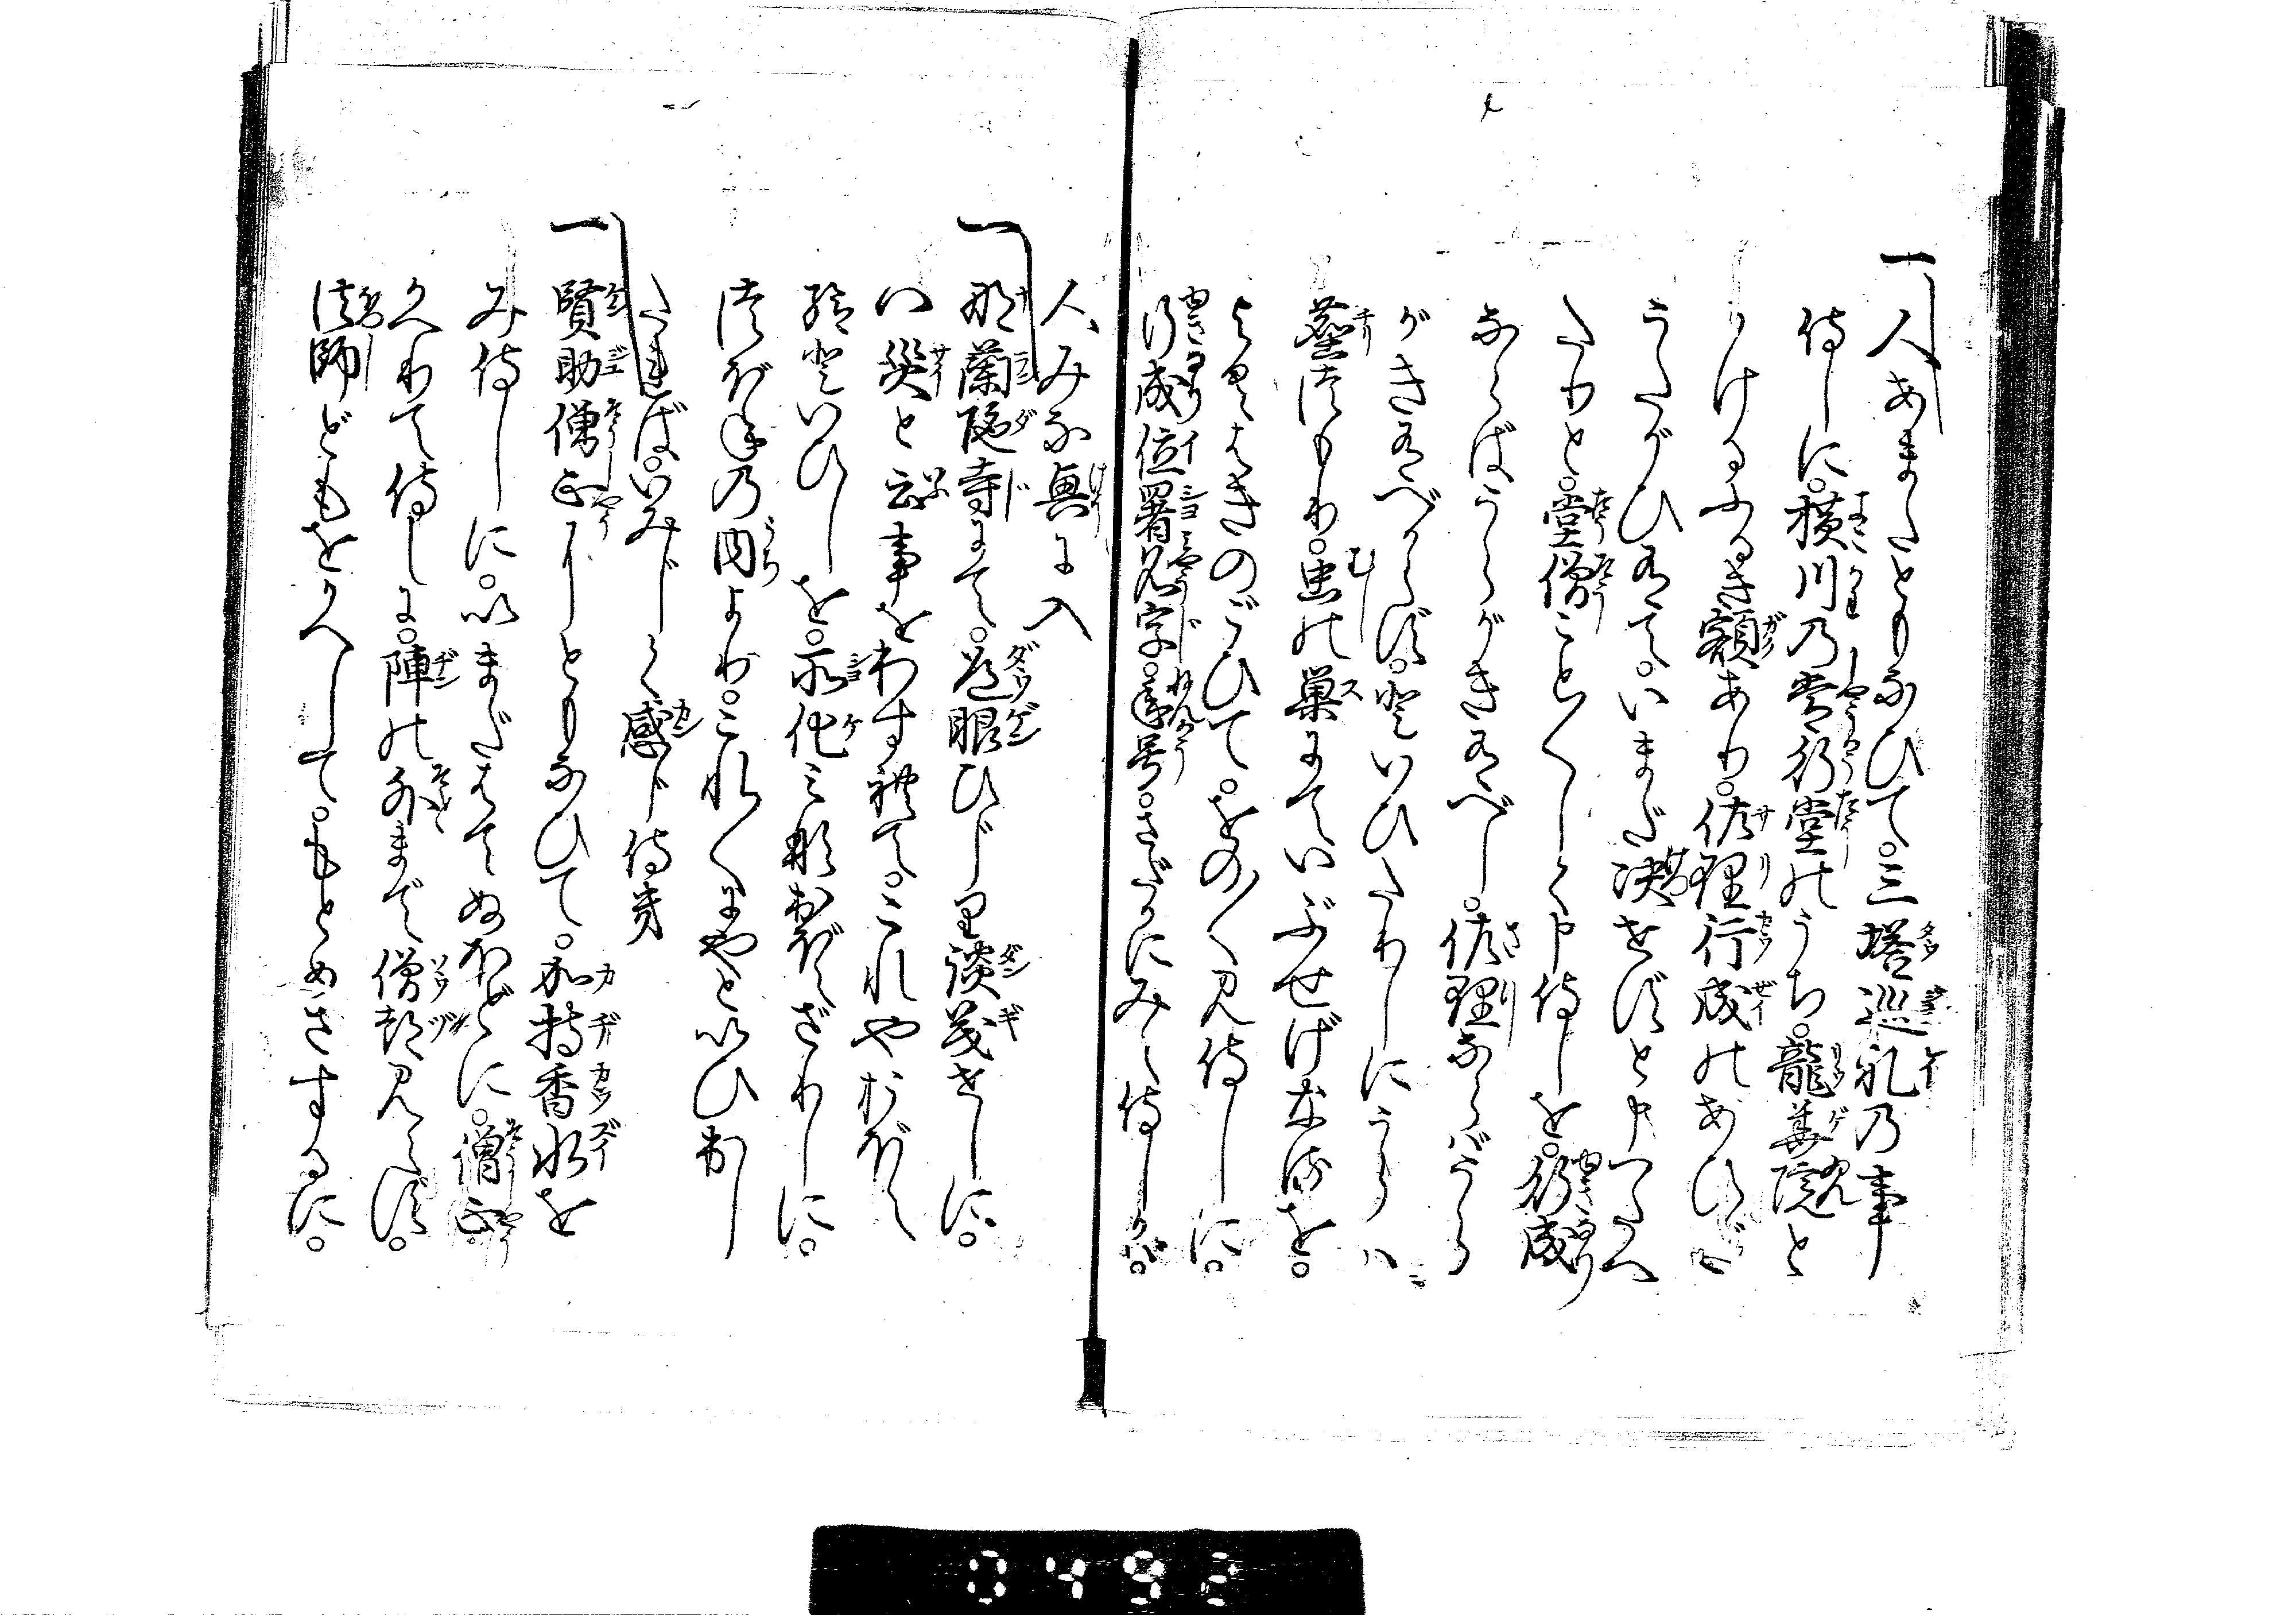 一人あまたともなひて。三塔巡礼乃事
侍しに。横川乃常行堂のうち。龍華院と
かけるふるき額あり。佐理行成のあひだ
うたがひ有て。いまだ決せずと申つたへ
たりと。堂僧こと〳〵しく申侍しを。行成
ならばうらがき有べし。佐理ならバうら
がき有べからず。といひたりしにうらハ
塵つもり。虫の巣にていぶせげなるを。
よくはきのごひて。をの〳〵見侍しに。
行成位署名字。年号。さだかにみえ侍しかバ。
人みな興に入
一那蘭陀寺にて。道眼ひじり談義せしに。
八災と云事をわすれて。これやおぼえ
給といひしを。所化ミ那おぼえざりしに。
つぼねの内より。これ〳〵にやといひ出し
たれば。いみじく感じ侍き
一賢助僧正にともなひて。加持香水を
み侍しに。いまだはてぬほどに。僧正
かへりて侍しに。陣の外まで僧都見えず。
法師どもをかへして。もとめさするに。
0498